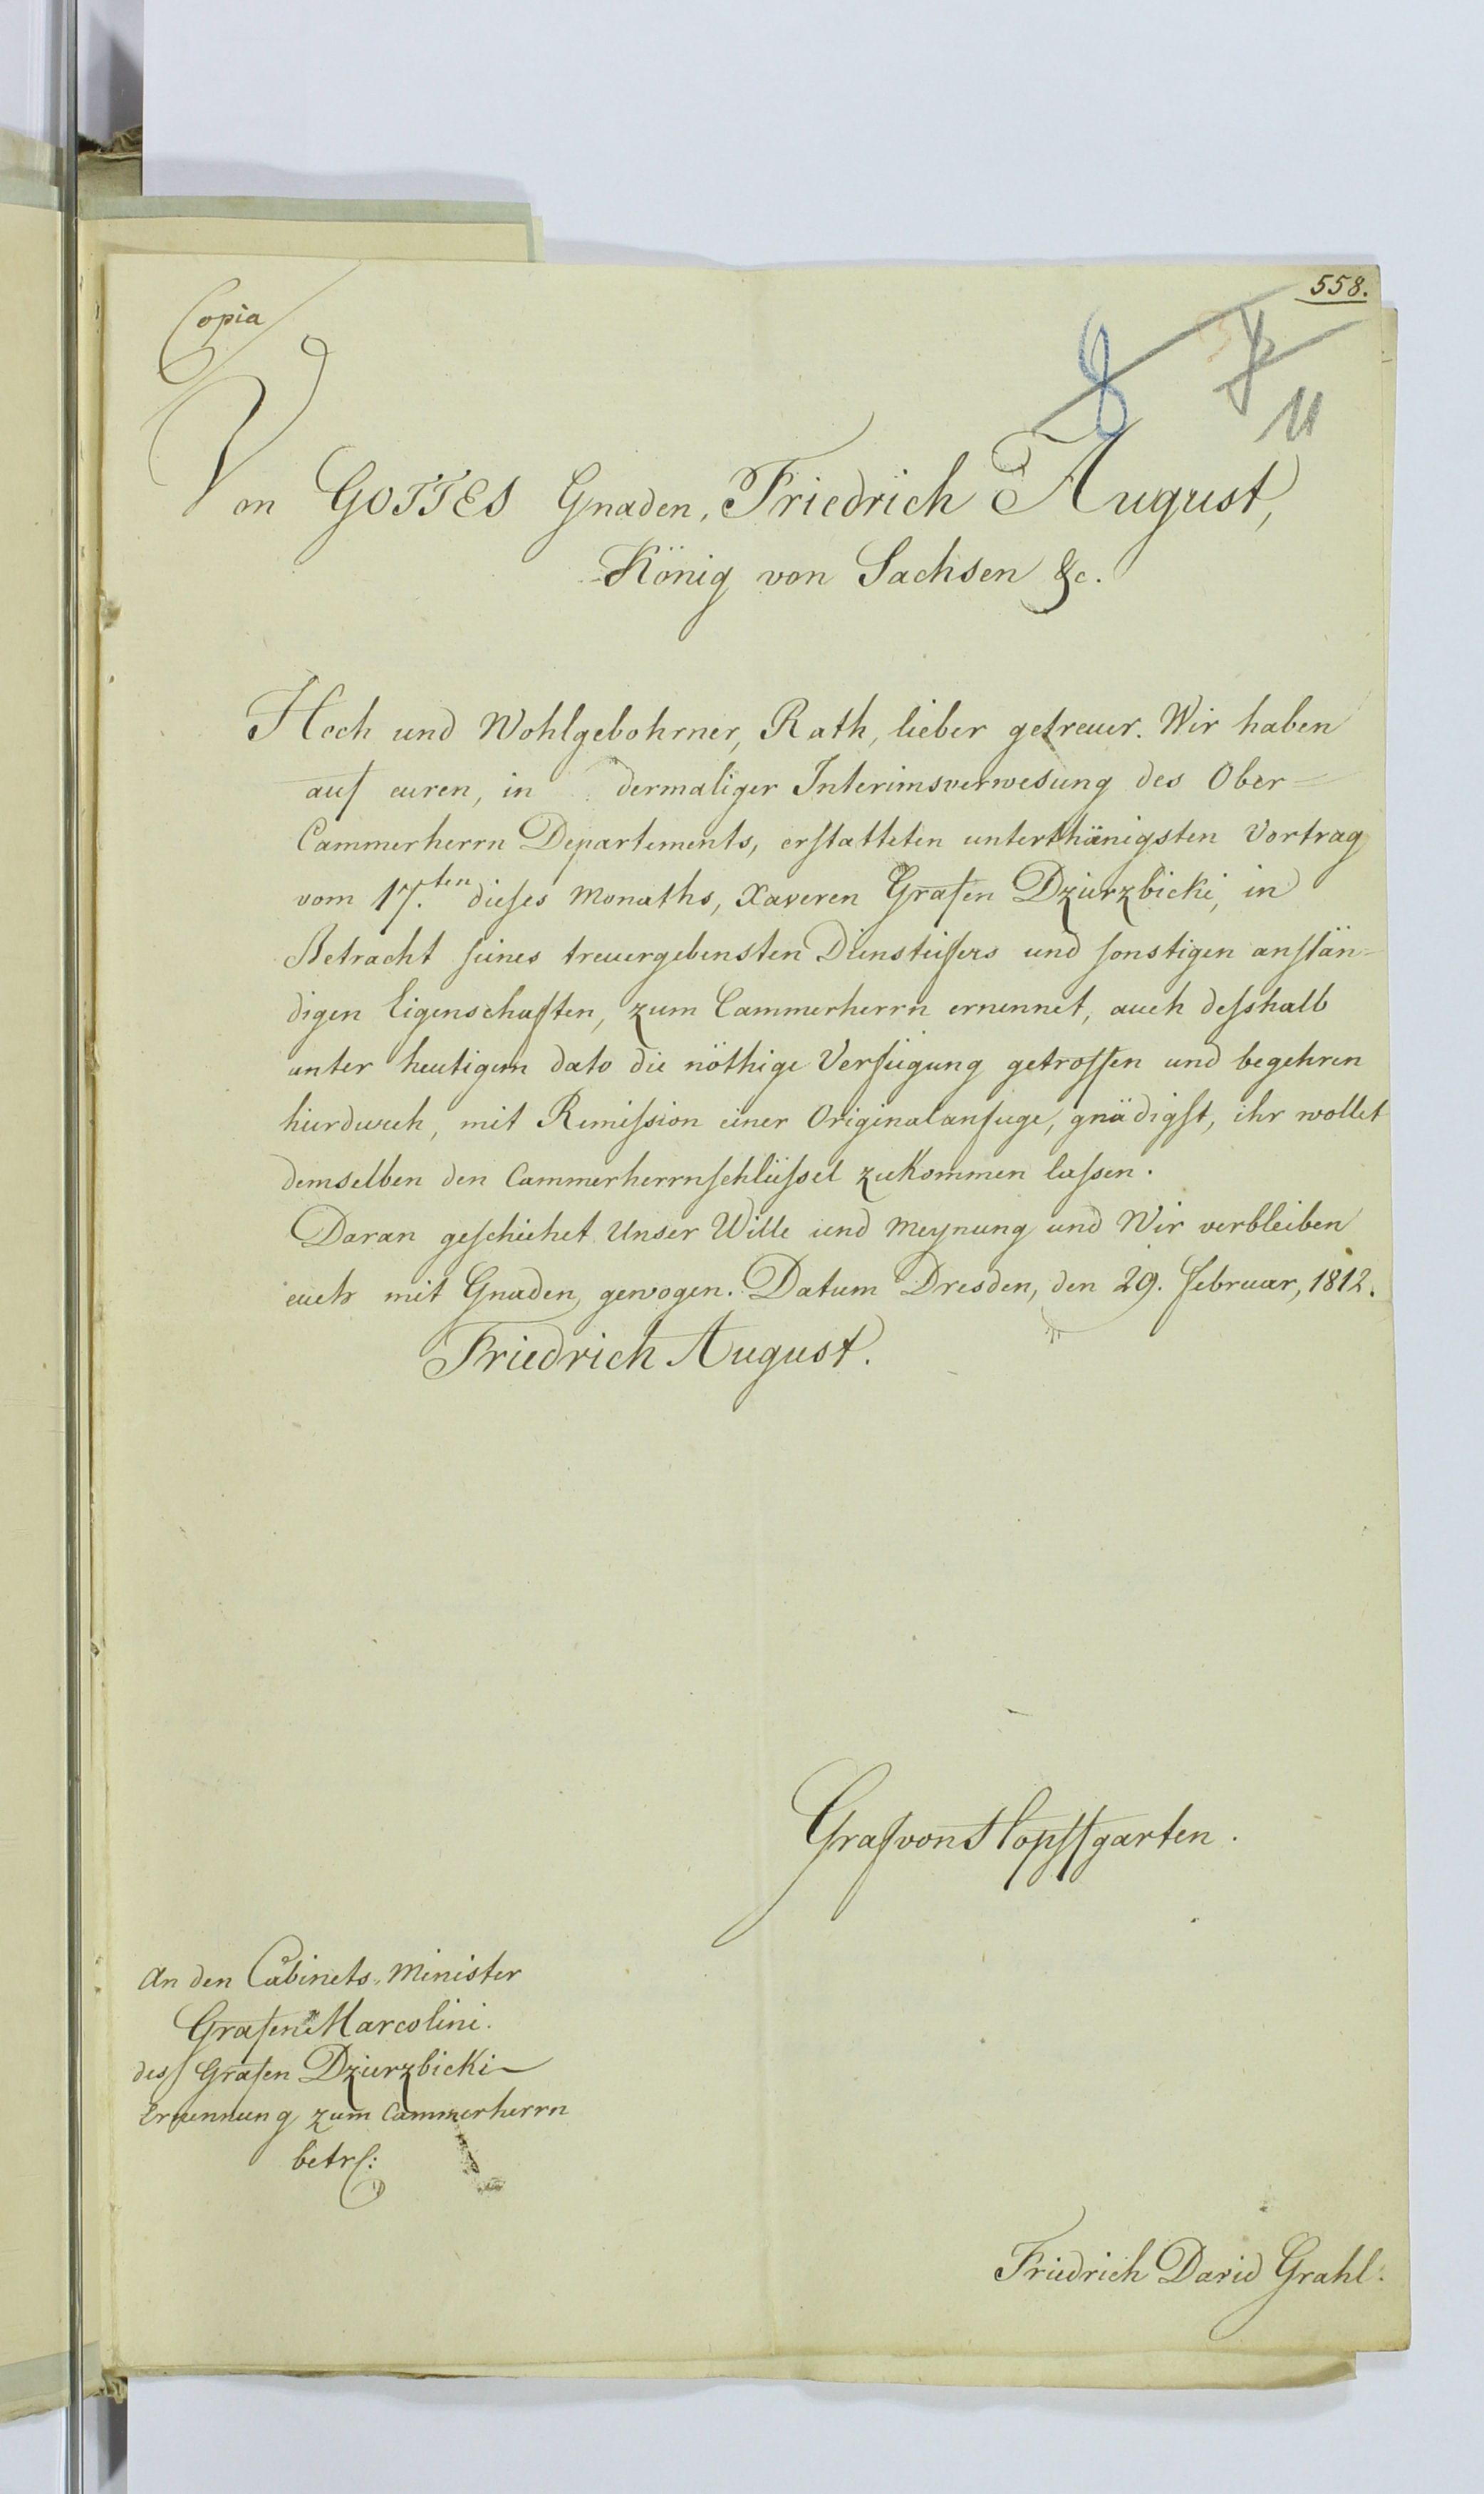 558.
Copia
8
11
Von GOTTES Gnaden, Friedrich August,
König von Sachsen &c.
Hoch und Wohlgebohrner, Rath, lieber getreuer. Wir haben
auf euren, in dermaliger Interimsverwesung des Ober=
Cammerherrn Departements, erstatteten unterthänigsten Vortrag
vom 17.ten dieses Monaths, Xaveren Grafen Dziurzbicki, in
Betracht seines treuergebensten Diensteifers und sonstigen anstän=
digen Eigenschaften, zum Cammerherrn ernennet, auch deßhalb
unter heutigem dato die nöthige Verfügung getroffen und begehren
hierdurch, mit Remission einer Originalanfuge, gnädigst, ihr wollet
demselben den Cammerherrnschlüssel zukommen lassen.
Daran geschiehet Unser Wille und Meynung und Wir verbleiben
euch mit Gnaden gewogen. Datum Dresden, den 29. Februar, 1812.
Friedrich August.
Graf von Hopffgarten.
An den Cabinets-Minister
Grafen Marcolini.
des Grafen Dziurzbicki
Ernennung zum Cammerherrn
betrf:
Friedrich David Grahl.